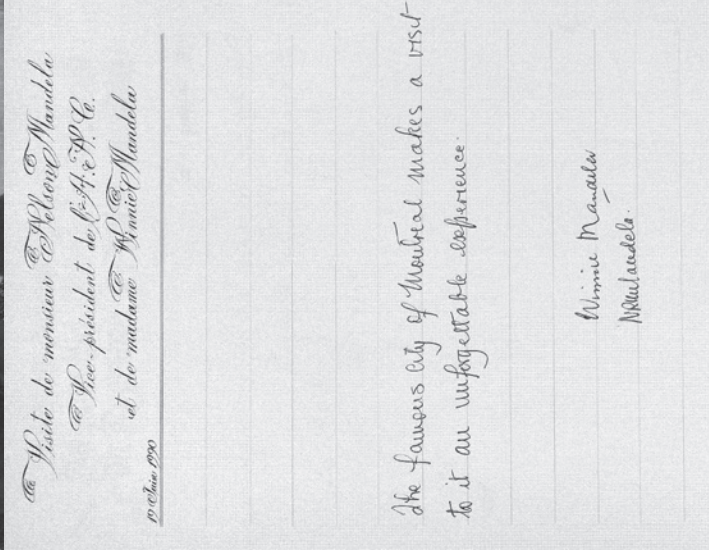 Visite de monsieur Nelson Mandela
Vice-président de l'A.N.C.
et de madame Winnie Mandela
19 Juin 1990
The famous city of Montreal makes a visit
to it an unforgettable experience.
Winnie Mandela
NRMandela.